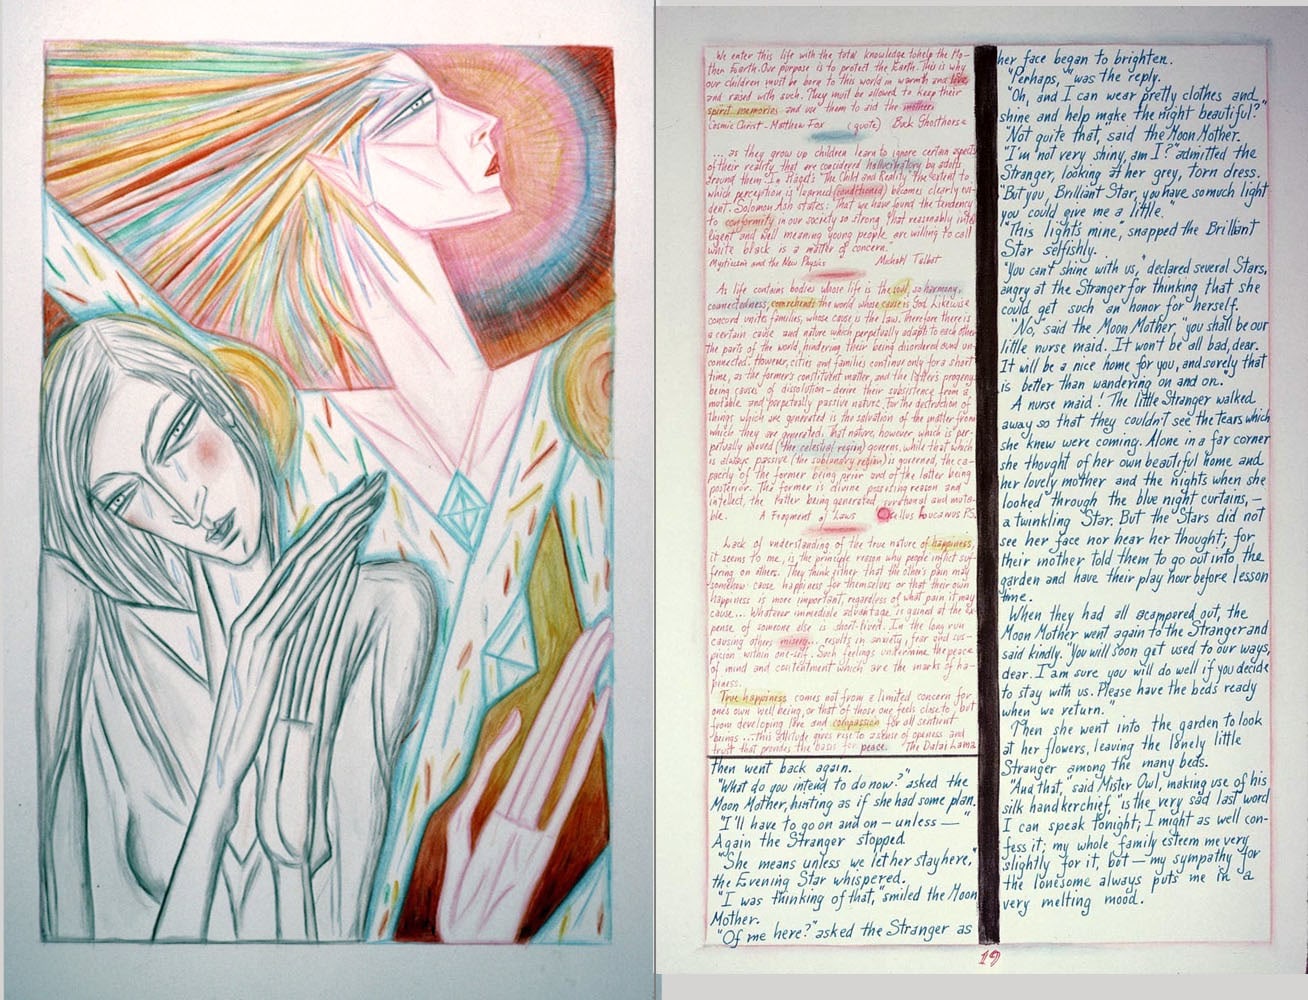 We enter this life with the total knowledge to help the Mo-
ther Earth. Our purpose is to protect the Earth. This is why
our children must be born to this world in warmth and love
and raised with such. They must be allowed to keep their
spirit memories and use them to aid the mother.
Cosmic Christ - Matthew Fox (quote) Buck Ghosthorse
... as they grow up children learn to ignore certain aspects
of their reality that are considered hallucinatory by adults
around them. In Piaget's The Child and Reality the extent to
which perception is "learned" (conditioned) becomes clearly evi-
dent. Solomon Ash states: That we have found the tendency
to conformity in our society so strong that reasonably intel
ligent and well meaning young people are willing to call
white black is a matter of concern."
Mysticism and the New Physics Michael Talbot
As life contains bodies whose life is the soul, so harmony,
connectedness, comprehends the world whose cause is God. Likewise
concord unites families, whose cause is the Law. Therefore there is
a certain cause and nature which perpetually adapts to each other
the parts of the world, hindering their being disordered and un-
connected. However, cities and families continue only for a short
time, as the former's constituent matter, and the latter's progeny
being causes of dissolution - derive their subsistence from a
mutable and perpetually passive nature. For the destruction of
things which are generated is the salvation of the matter from
which they are generated. That nature, however which is per-
petually moved (the celestial region) governs, while that which
is always passive (the sublunary region) is governed, the ca-
pacity of the former being prior and of the latter being
posterior. The former is divine possessing reason and
intellect, the latter being generated, irrational and muta-
ble. A Fragment of Laws Ocellus Loucanus P.S.
Lack of understanding of the true nature of happiness,
it seems to me, is the principle reason why people inflict suf-
fering on others. They think either that the other's pain may
somehow cause happiness for themselves or that their own
happiness is more important, regardless of what pain it may
cause... Whatever immediate advantage is gained at the ex-
pense of someone else is short-lived. In the long run
causing others misery... results in anxiety, fear and sus-
picion within one-self. Such feelings undermine the peace
of mind and contentment which are the marks of ha-
piness.
True happiness comes not from a limited concern for
one's own well being, or that of those one feels close to, but
from developing love and compassion for all sentient
beings ... This attitude gives rise to a sense of openess and
trust that provides the basis for peace. The Dalai Lama
then went back again.
"What do you intend to do now?" asked the
Moon Mother, hinting as if she had some plan.
"I'll have to go on and on — unless —"
Again the Stranger stopped.
"She means unless we let her stay here,"
the Evening Star whispered.
"I was thinking of that," smiled the Moon
Mother.
"Of me here?" asked the Stranger as
her face began to brighten.
"Perhaps," was the reply.
"Oh, and I can wear pretty clothes and
shine and help make the night beautiful?"
"Not quite that, said the Moon Mother.
"I'm not very shiny, am I?" admitted the
Stranger, looking at her grey, torn dress.
"But you, Brilliant Star, you have so much light
you could give me a little."
"This lights mine," snapped the Brilliant
Star selfishly.
"You can't shine with us," declared several Stars,
angry at the Stranger for thinking that she
could get such an honor for herself.
"No," said the Moon Mother, "you shall be our
little nurse maid. It won't be all bad, dear.
It will be a nice home for you, and surely that
is better than wandering on and on."
A nurse maid! The little Stranger walked
away so that they couldn't see the tears which
she knew were coming. Alone in a far corner
she thought of her own beautiful home and
her lovely mother and the nights when she
looked through the blue night curtains, —
a twinkling Star. But the Stars did not
see her face nor hear her thought; for
their mother told them to go out into the
garden and have their play hour before lesson
time.
When they had all scampered out, the
Moon Mother went again to the Stranger and
said kindly. "You will soon get used to our ways,
dear. I am sure you will do well if you decide
to stay with us. Please have the beds ready
when we return."
Then she went into the garden to look
at her flowers, leaving the lonely little
Stranger among the many beds.
"And that," said Mister Owl, making use of his
silk handkerchief, "is the very sad last word
I can speak tonight; I might as well con-
fess it; my whole family esteem me very
slightly for it, but — my sympathy for
the lonesome always puts me in a
very melting mood.
19